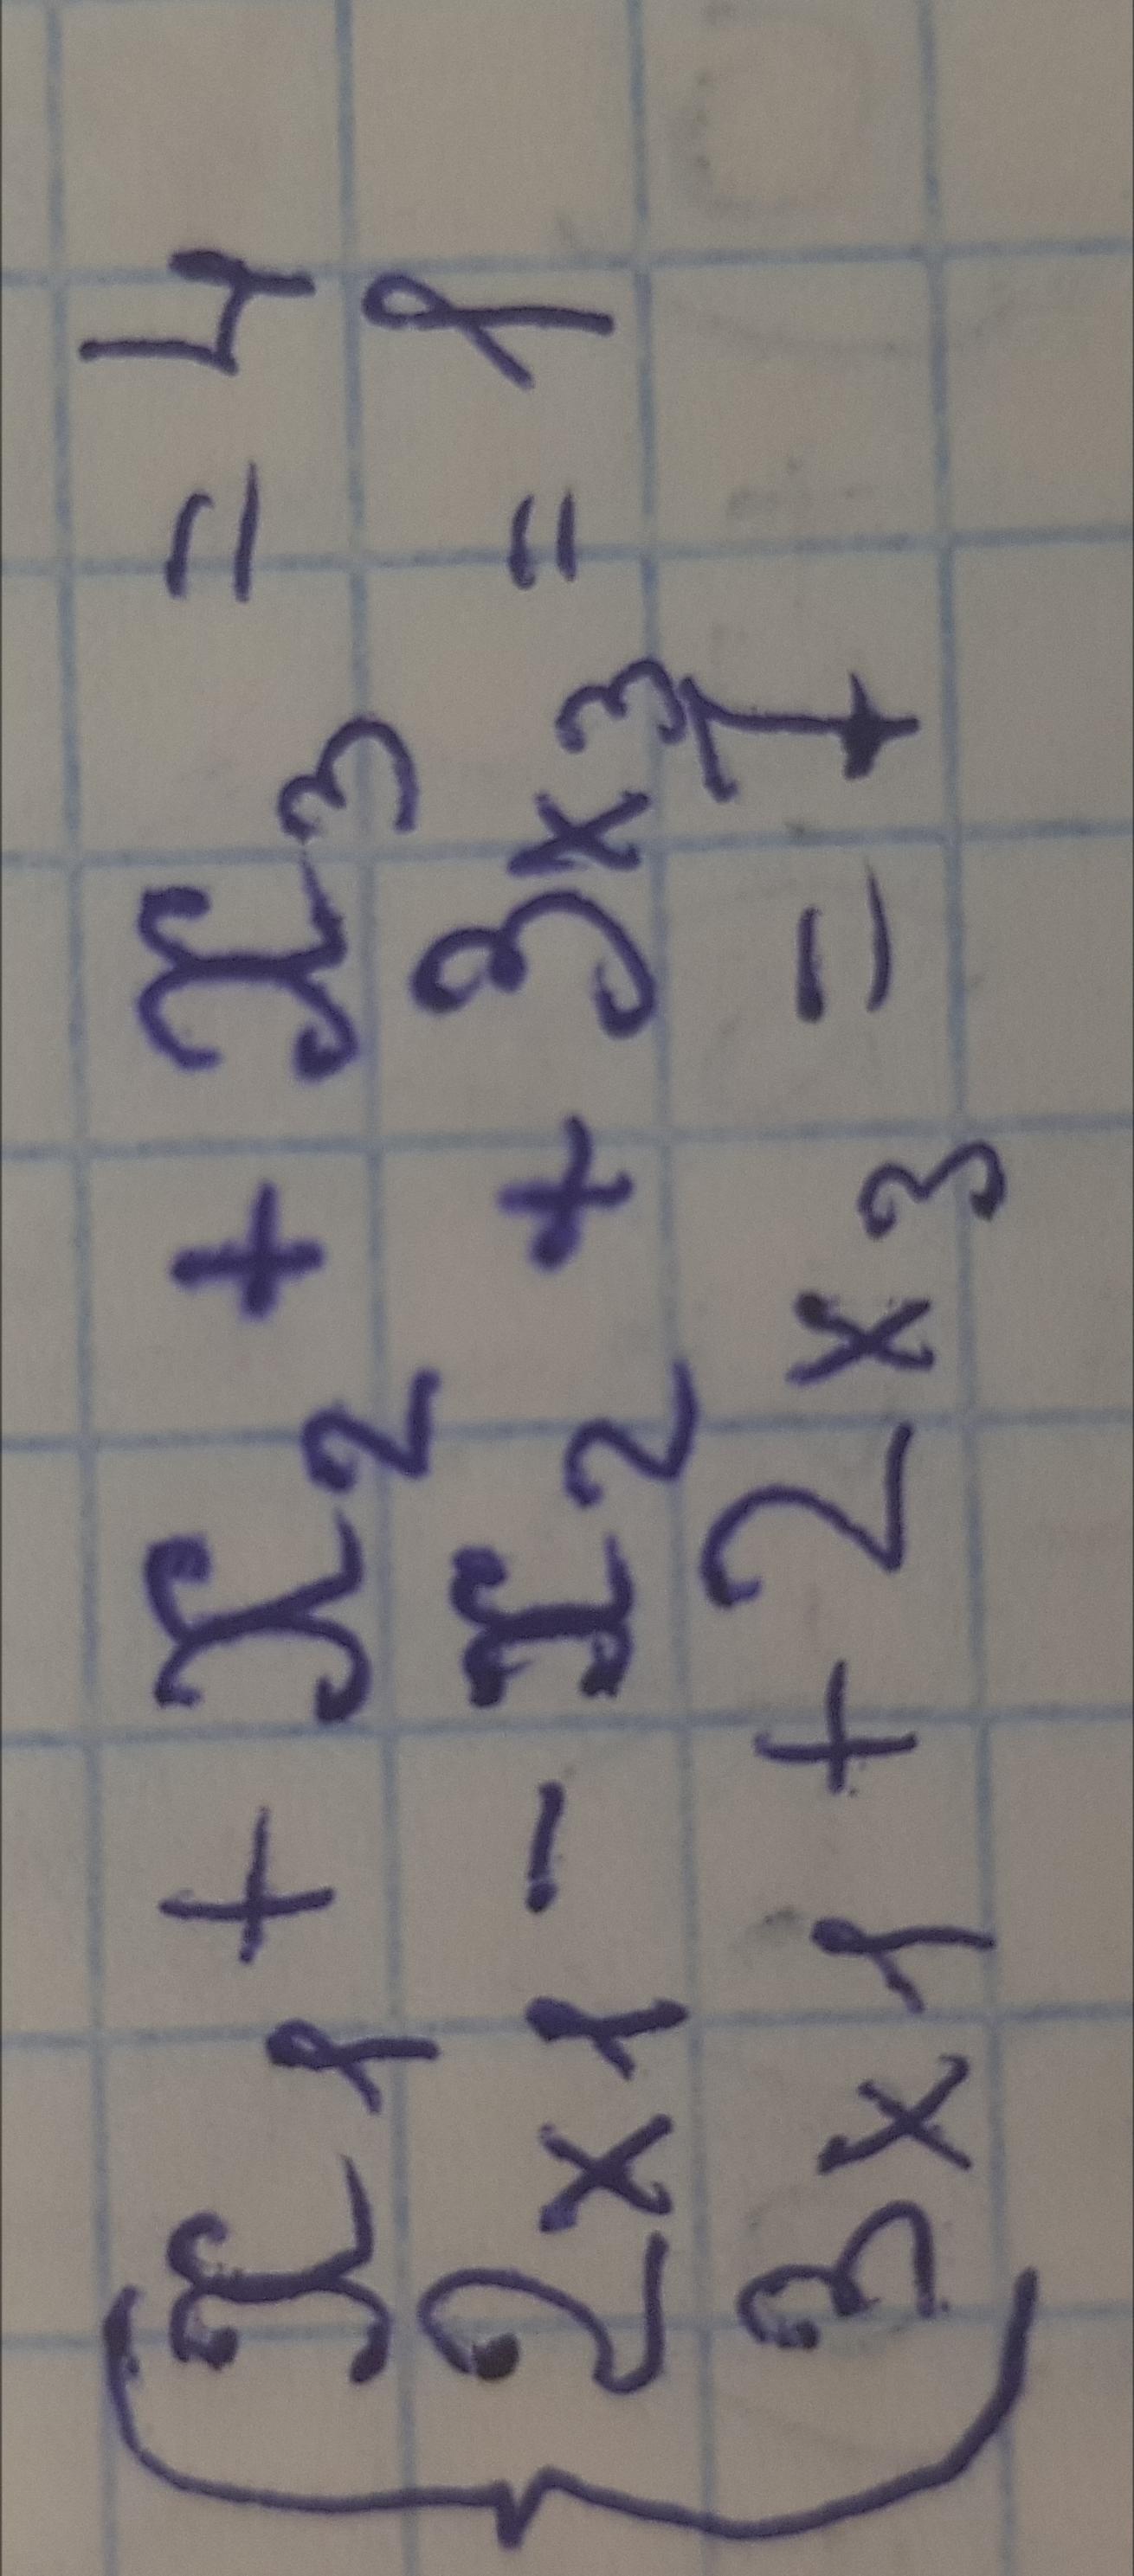 x₁ + x₂ + x₃ = 4
2x₁ - x₂ + 3x₃ = 1
3x₁ + 2x₃ = 7